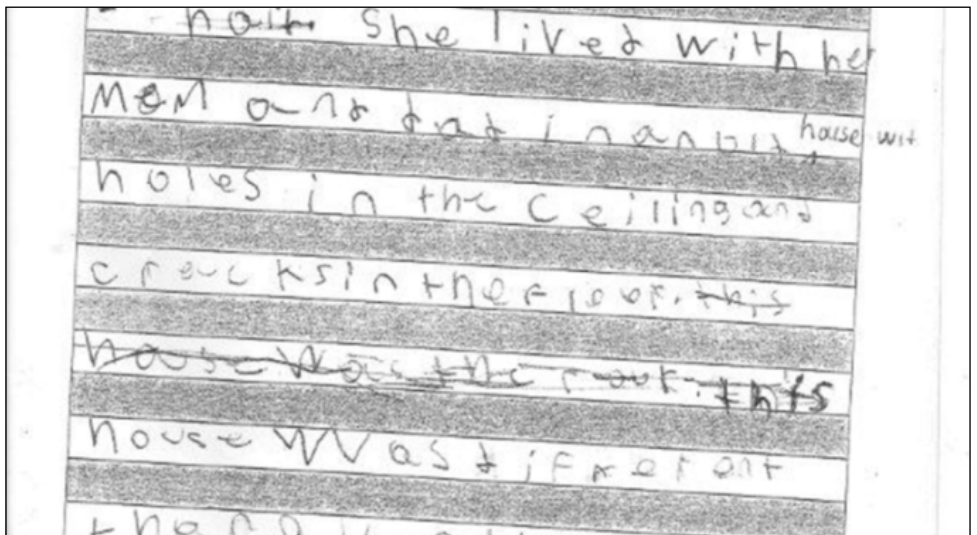 hair she lived with her
mom and dad in an old house wit
holes in the ceiling and
craucks in the floor. this
house was the rouk. this
house was difxerent
than